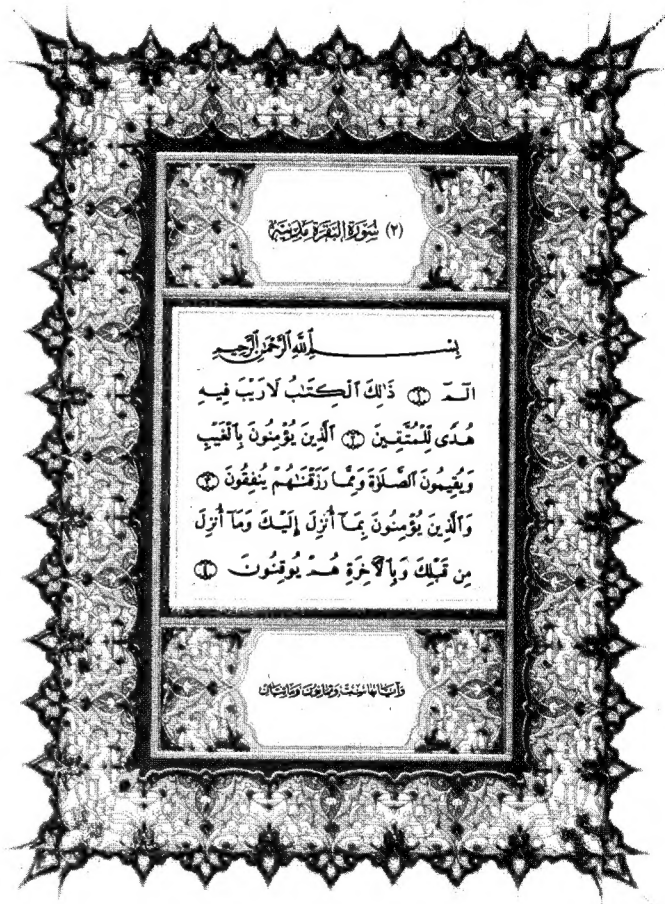 (٢) سُورَةُ البَقَرَةِ مَدَنِيَّة
بِسْمِ ٱللَّهِ ٱلرَّحْمَٰنِ ٱلرَّحِيمِ
الٓمٓ ۝١ ذَٰلِكَ ٱلْكِتَٰبُ لَا رَيْبَ فِيهِ
هُدًى لِّلْمُتَّقِينَ ۝٢ ٱلَّذِينَ يُؤْمِنُونَ بِٱلْغَيْبِ
وَيُقِيمُونَ ٱلصَّلَوٰةَ وَمِمَّا رَزَقْنَٰهُمْ يُنفِقُونَ ۝٣
وَٱلَّذِينَ يُؤْمِنُونَ بِمَآ أُنزِلَ إِلَيْكَ وَمَآ أُنزِلَ
مِن قَبْلِكَ وَبِٱلْأَخِرَةِ هُمْ يُوقِنُونَ ۝٤
وآياتها ست وثمانون ومائتان